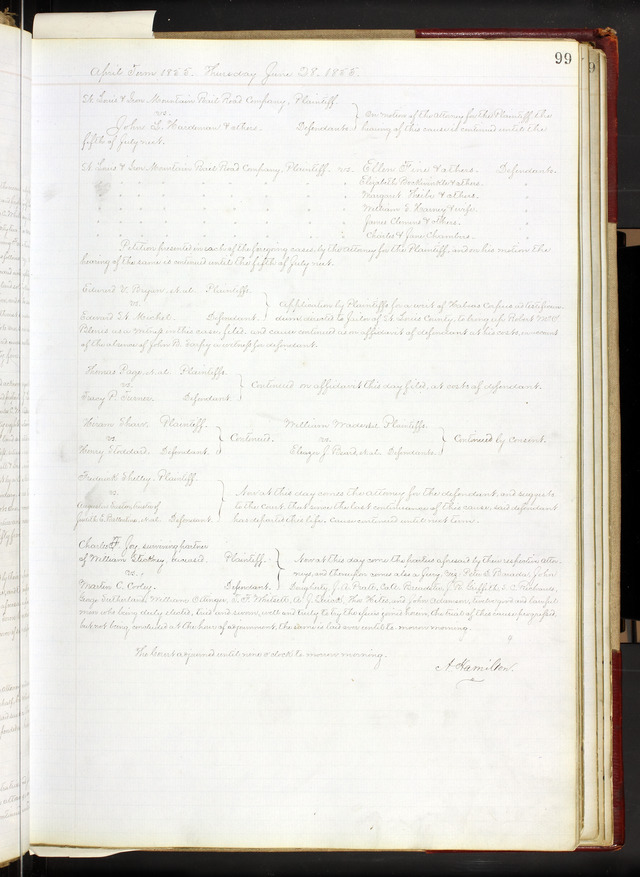 99
April Term 1855. Thursday June 28. 1855.
St. Louis & Iron Mountain Rail Road Company, Plaintiff.
vs. On motion of the attorney for the Plaintiff, the
John L. Hardeman & others. Defendants. hearing of this cause is continued until the
fifth of July next.
St. Louis & Iron Mountain Rail Road Company, Plaintiff. vs. Ellen Fine & others. Defendants.
Elizabeth & others.
Margaret & others.
William S. Harney & wife.
James Clemens & others.
Charles & Jane Chambers.
Petition presented in each of the foregoing cases, by the attorney for the Plaintiff, and on his motion the
hearing of the same is continued until the fifth of July next.
Edward V. Bryan, et al. Plaintiffs.
vs. Application by Plaintiffs for a writ of Habeas Corpus ad testifican-
Edward H. Defendant. dum directed to Jailor of St. Louis County, to bring up Robert
as a witness in this case, filed, and cause continued on affidavit of defendant at his costs, on account
of the absence of John B. a witness for defendant.
Thomas Page, et al. Plaintiffs.
vs. Continued on affidavit this day filed, at costs of defendant.
P. Turner. Defendant.
Hiram Shaw. Plaintiff. William Wade et al Plaintiffs.
vs. Continued. vs. Continued by consent.
Henry Stoddard. Defendant. J. Beard, et al. Defendants.
Frederick Shelley. Plaintiff.
vs. Now at this day comes the attorney for the defendant, and suggests
to the Court, that since the last continuance of this cause, said defendant
et al. Defendant. has departed this life. Cause continued until next term.
Charles F. Joy, surviving partner
of William Stuckey, deceased. Plaintiff. Now at this day come the parties aforesaid by their respective attor-
vs. neys, and thereupon comes also a jury, viz: Peter S. John
Martin C. Corley. Defendant. Daugherty, J. A. Pratt, J. W. Griffith, S. Richards,
George Sutherland, William T. F. A. J. Thos. and John Adamson, twelve good and lawful
men who being duly elected, tried and sworn, well and truly to try the issue joined herein, the trial of this cause progressed,
but not being concluded at the hour of adjournment, the same is laid over until to morrow morning.
The Court adjourned until nine o'clock to morrow morning.
A. Hamilton.